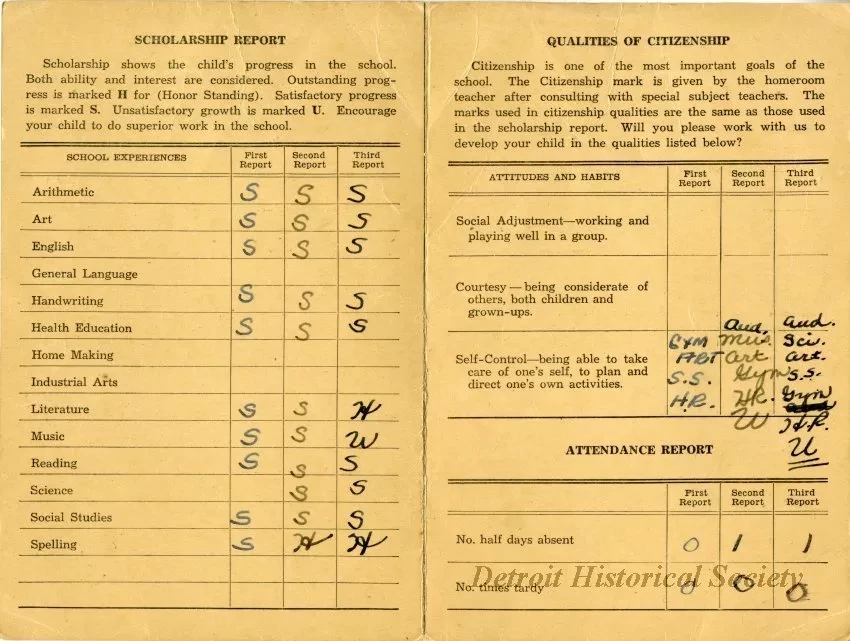 SCHOLARSHIP REPORT
Scholarship shows the child's progress in the school.
Both ability and interest are considered. Outstanding prog-
ress is marked H for (Honor Standing). Satisfactory progress
is marked S. Unsatisfactory growth is marked U. Encourage
your child to do superior work in the school.
SCHOOL EXPERIENCES First Report Second Report Third Report
Arithmetic S S S
Art S S S
English S S S
General Language
Handwriting S S S
Health Education S S S
Home Making
Industrial Arts
Literature S S H
Music S S U
Reading S S S
Science S S
Social Studies S S S
Spelling S H H
QUALITIES OF CITIZENSHIP
Citizenship is one of the most important goals of the
school. The Citizenship mark is given by the homeroom
teacher after consulting with special subject teachers. The
marks used in citizenship qualities are the same as those used
in the scholarship report. Will you please work with us to
develop your child in the qualities listed below?
ATTITUDES AND HABITS First Report Second Report Third Report
Social Adjustment—working and
playing well in a group.
Courtesy—being considerate of
others, both children and
grown-ups.
Self-Control—being able to take
care of one's self, to plan and
direct one's own activities.
GYM
ART
S.S.
H.R.
Aud.
Mus.
Art
Gym
H.R.
U
Aud.
Sci.
Art.
S.S.
Gym
H.R.
U
ATTENDANCE REPORT
First Report Second Report Third Report
No. half days absent 0 1 1
No. times tardy 0 0 0
Detroit Historical Society